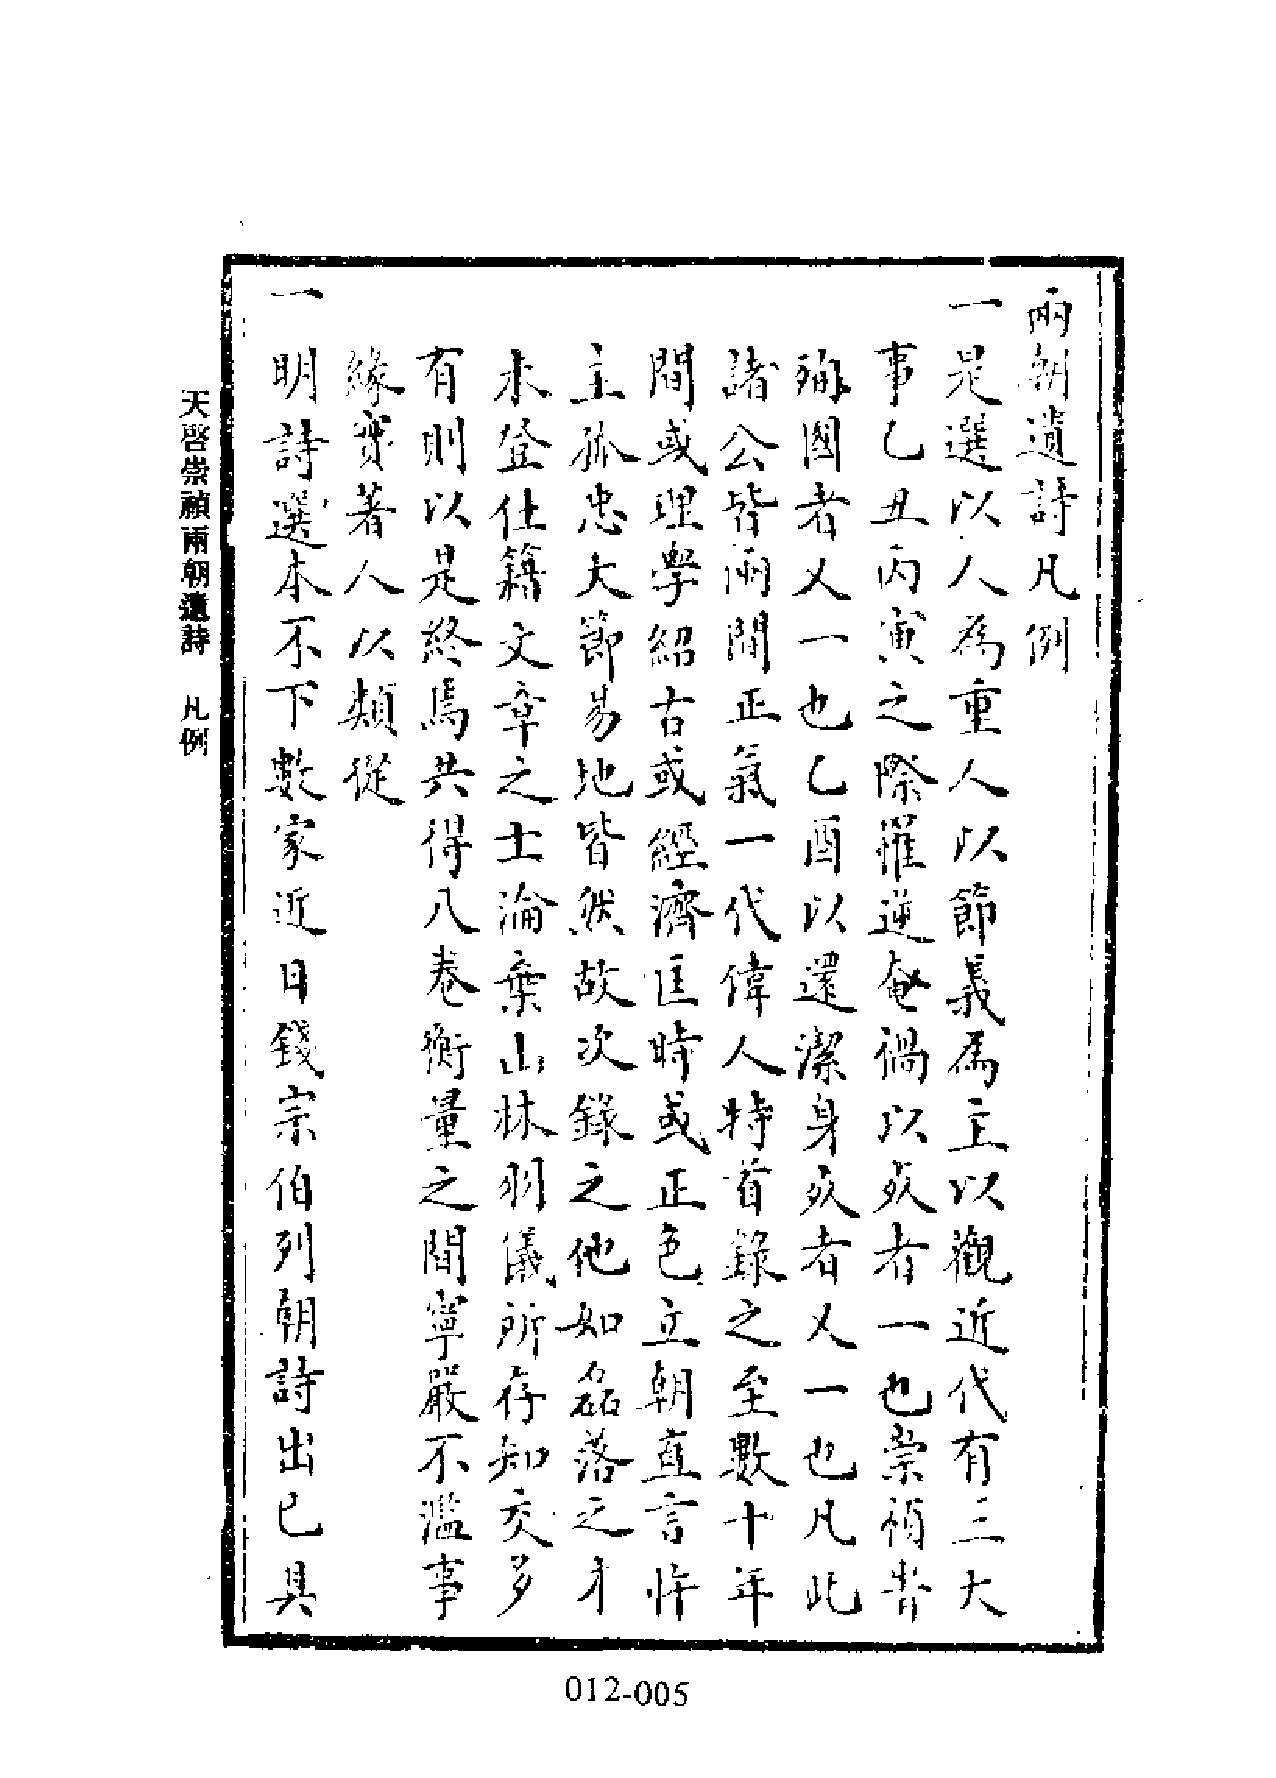 兩朝遺詩凡例
一是選以人為重人以節義為主以觀近代有三大
事乙丑丙寅之際罹逆奄禍以死者一也崇禎旹
殉國者又一也乙酉以還潔身死者又一也凡此
諸公皆兩間正氣一代偉人特首錄之至數十年
間或理學紹古或經濟匡時或正色立朝直言忤
主孤忠大節易地皆然故次錄之他如磊落之才
未登仕籍文章之士淪棄山林羽儀所存知交多
有則以是終焉共得八卷衡量之間寧嚴不濫事
緣實著人以類從
一明詩選本不下數家近日錢宗伯列朝詩出已具
天啓崇禎兩朝遺詩 凡例
012-005